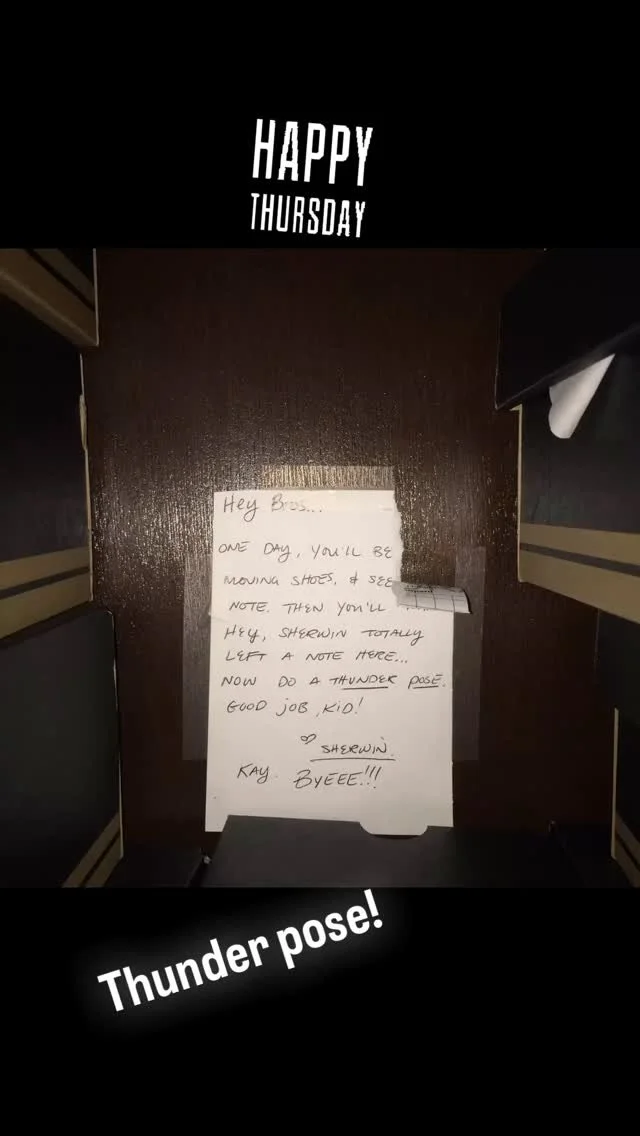 HAPPY
THURSDAY
Hey Bros...
ONE DAY, YOU'LL BE
MOVING SHOES, & SEE
NOTE. THEN YOU'LL
HEY, SHERWIN TOTALLY
LEFT A NOTE HERE...
NOW DO A THUNDER POSE.
GOOD JOB, KID!
♡ SHERWIN.
KAY. BYEEE!!!
Thunder pose!